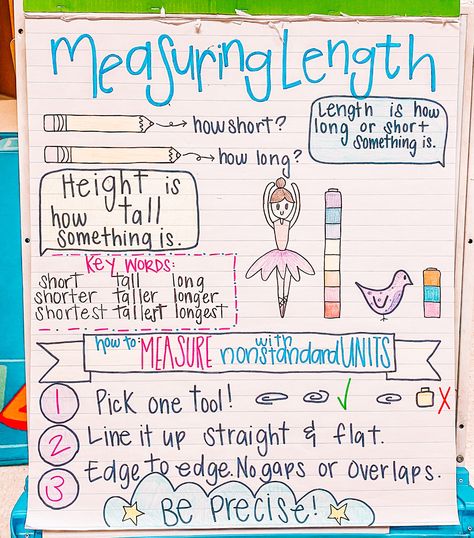 Measuring Length
how short?
how long?
Length is how
long or short
something is.
Height is
how tall
something is.
KEY WORDS:
short tall long
shorter taller longer
shortest tallert longest
how to: MEASURE with nonstandard UNITS
1 Pick one tool!
2 Line it up straight & flat.
3 Edge to edge. No gaps or overlaps.
Be Precise!